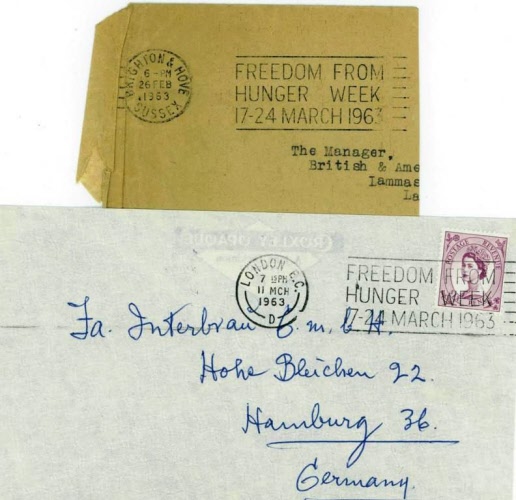 BRIGHTON & HOVE
6 - PM
26 FEB
1963
SUSSEX
FREEDOM FROM
HUNGER WEEK
17-24 MARCH 1963
The Manager,
British & Ame
Lammas
La
CROXLEY OPAQUE
LONDON E.C.
7 15 PM
11 MCH
1963
D
FREEDOM FROM
HUNGER WEEK
17-24 MARCH 1963
POSTAGE REVENUE
Fa. Interbrau G.m.b.H.
Hohe Bleichen 22.
Hamburg 36.
Germany.